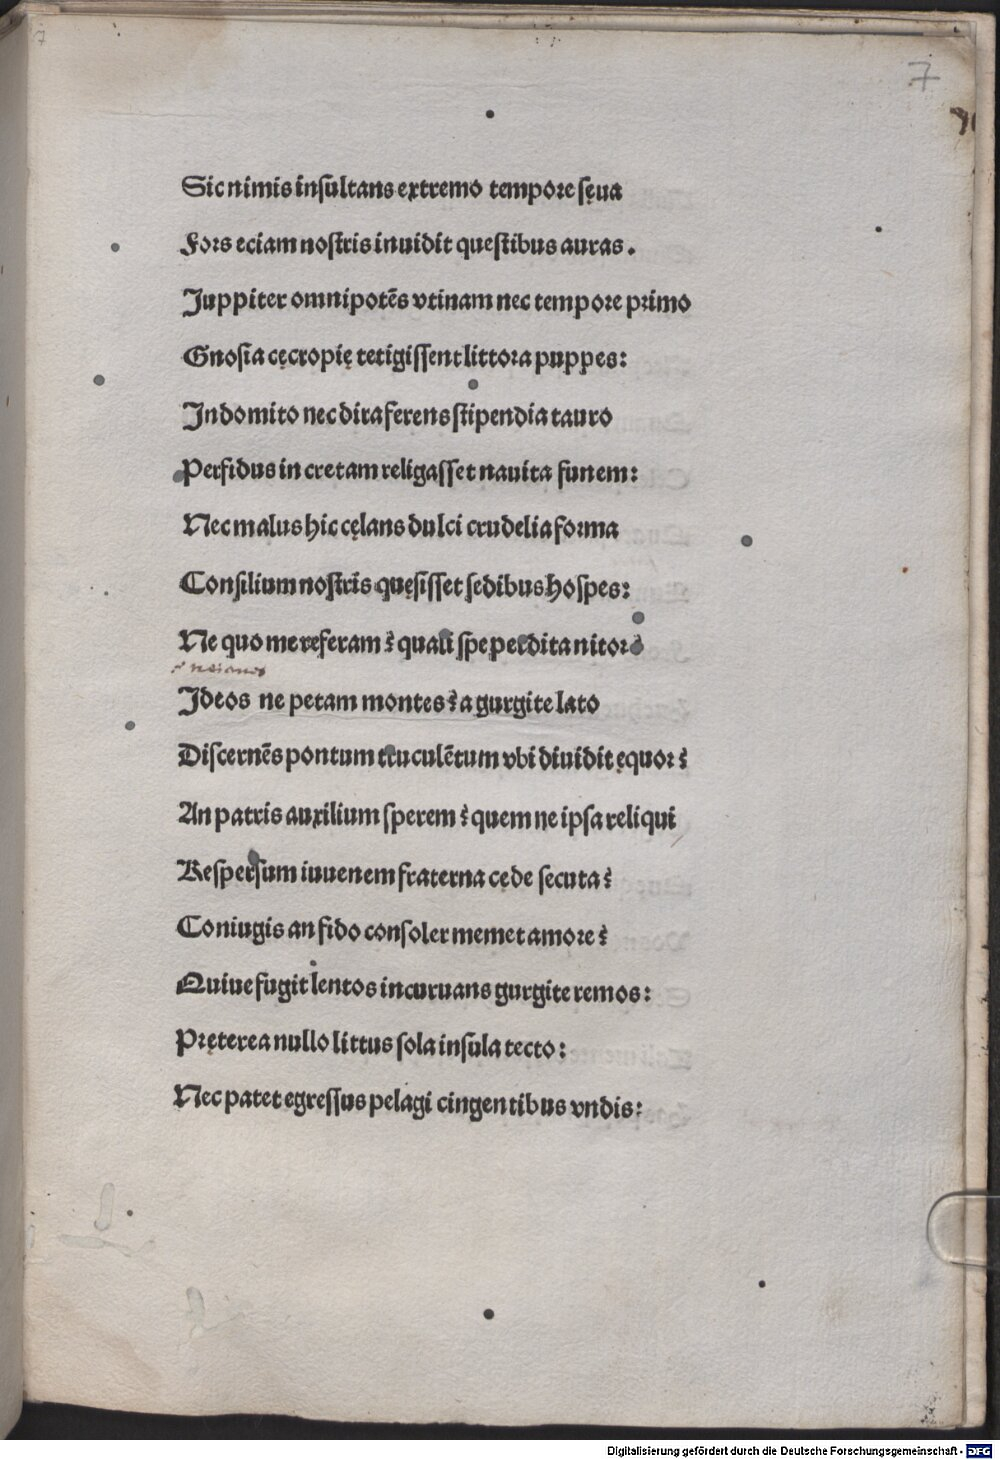 7
7
Sic nimis inſultans extremo tempore ſęua
Fors eciam noſtris inuidit queſtibus auras.
Juppiter omnipotēs vtinam nec tempore primo
Gnoſia cęcropię tetigiſſent littora puppes:
Indomito nec dira ferens ſtipendia tauro
Perfidus in cretam religaſſet nauita funem:
Nec malus hic cęlans dulci crudelia forma
Conſilium noſtris quęſiſſet ſedibus hoſpes:
Ne quo me referam? quali ſpe perdita nitor?
Ideos ne petam montes? a gurgite lato
Diſcernēs pontum truculētum vbi diuidit ęquor?
An patris auxilium ſperem? quem ne ipſa reliqui
Reſperſum iuuenem fraterna cęde ſecuta?
Coniugis an fido conſoler memet amore?
Quiue fugit lentos incuruans gurgite remos:
Pręterea nullo littus ſola inſula tecto:
Nec patet egreſſus pelagi cingentibus vndis:
Digitalisierung gefördert durch die Deutsche Forschungsgemeinschaft - DFG